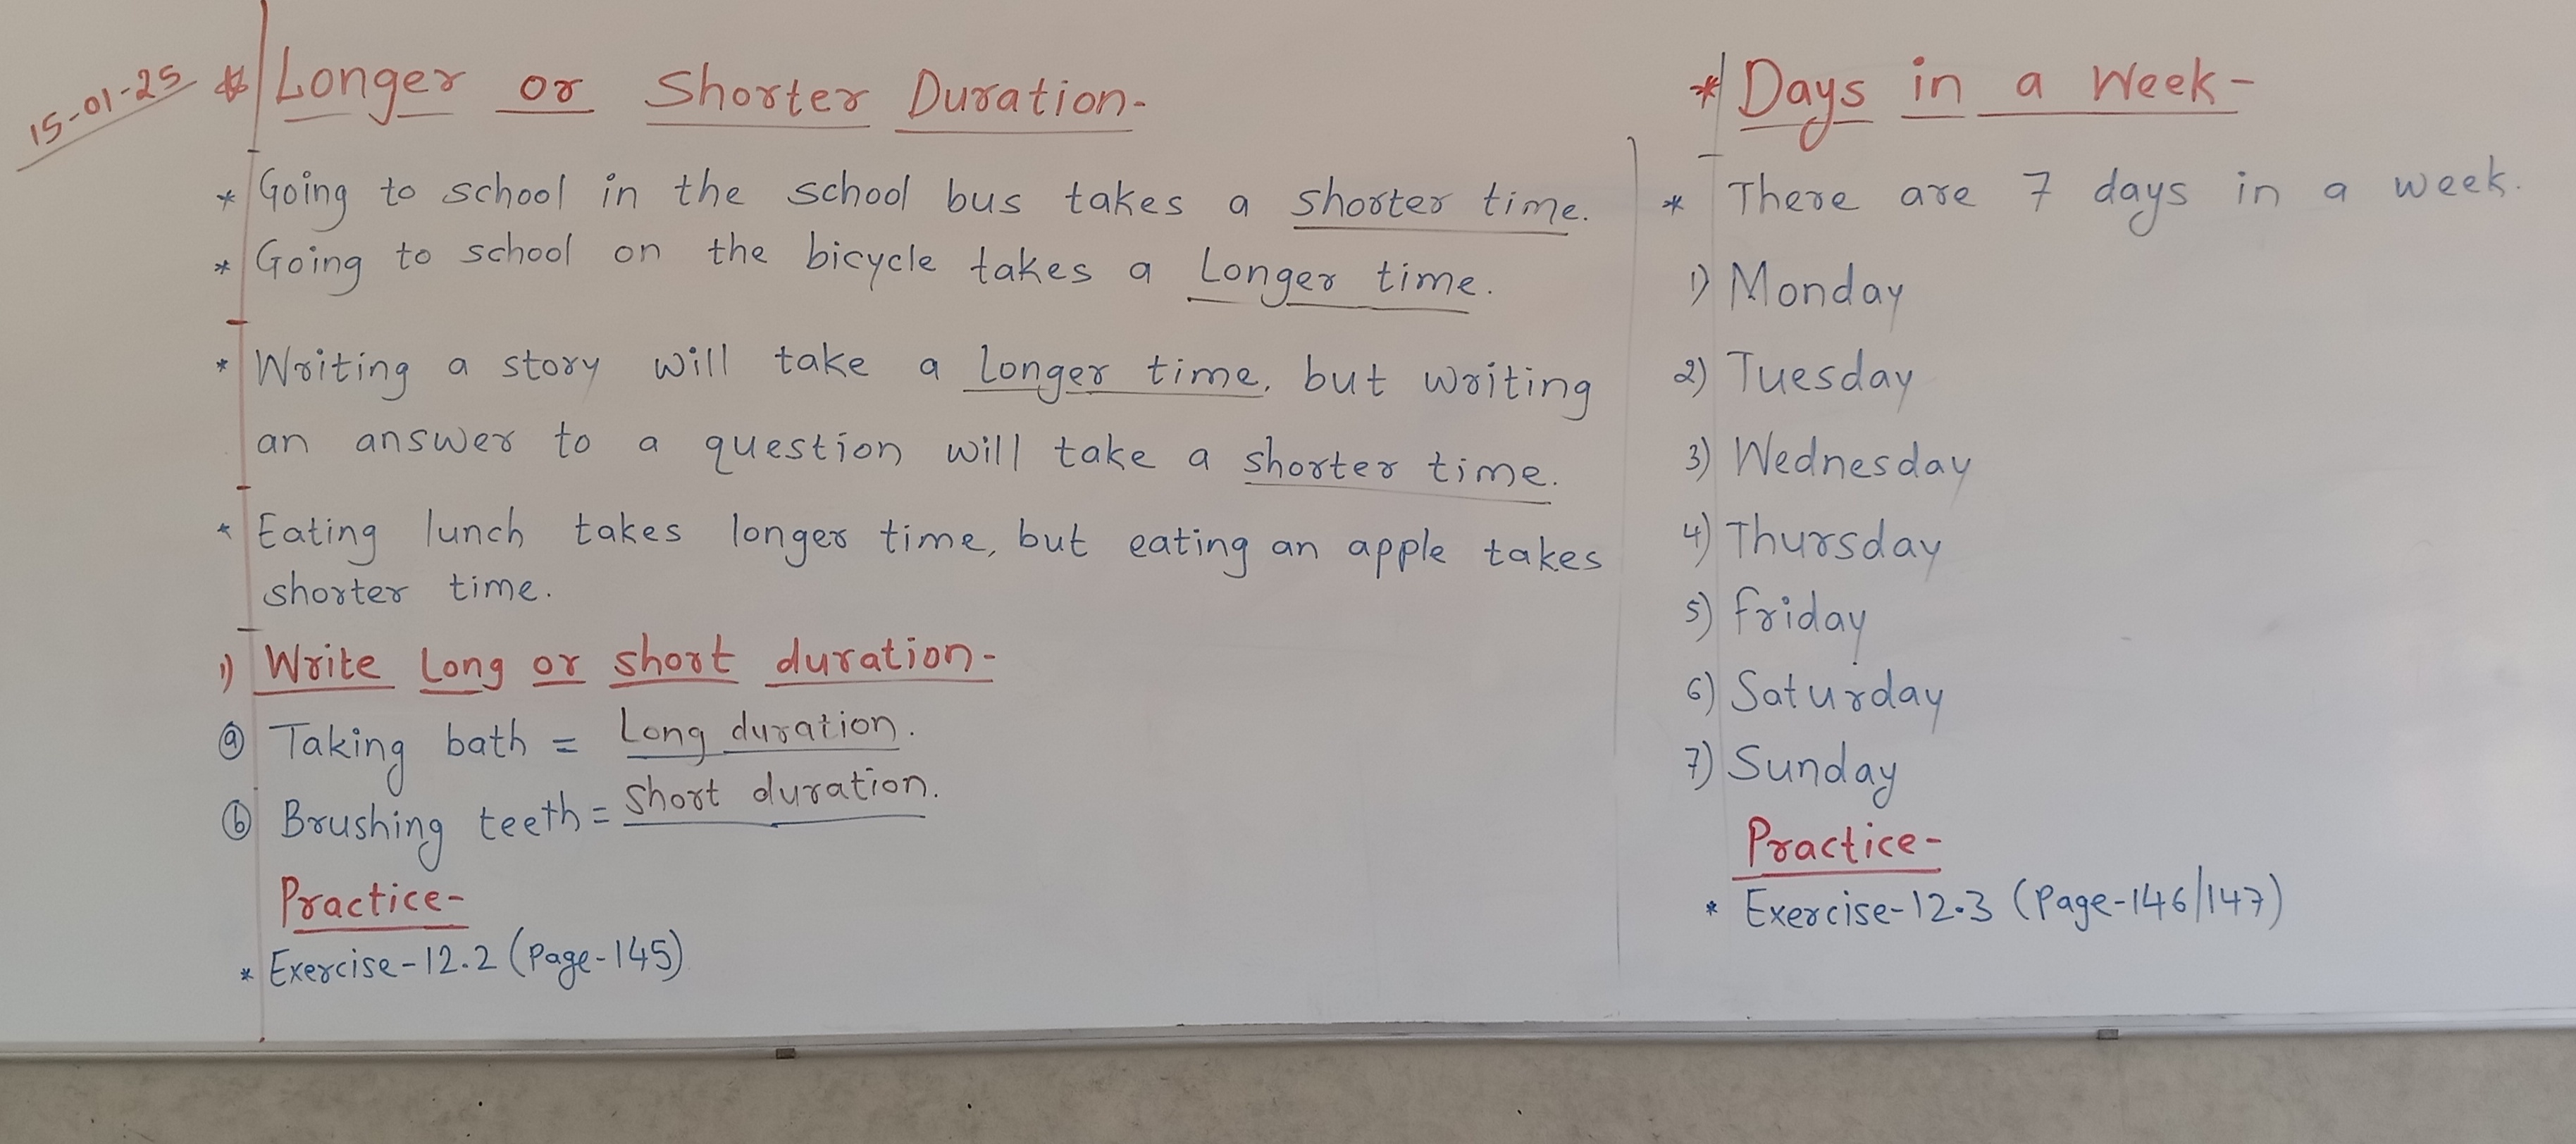 15-01-25
* Longer or Shorter Duration-
* Going to school in the school bus takes a shorter time.
* Going to school on the bicycle takes a Longer time.
* Writing a story will take a longer time, but writing
an answer to a question will take a shorter time.
* Eating lunch takes longer time, but eating an apple takes
shorter time.
1) Write Long or short duration-
ⓐ Taking bath = Long duration.
ⓑ Brushing teeth = Short duration.
Practice-
* Exercise-12.2 (Page-145)
* Days in a Week-
* There are 7 days in a week.
1) Monday
2) Tuesday
3) Wednesday
4) Thursday
5) Friday
6) Saturday
7) Sunday
Practice-
* Exercise-12.3 (Page-146/147)